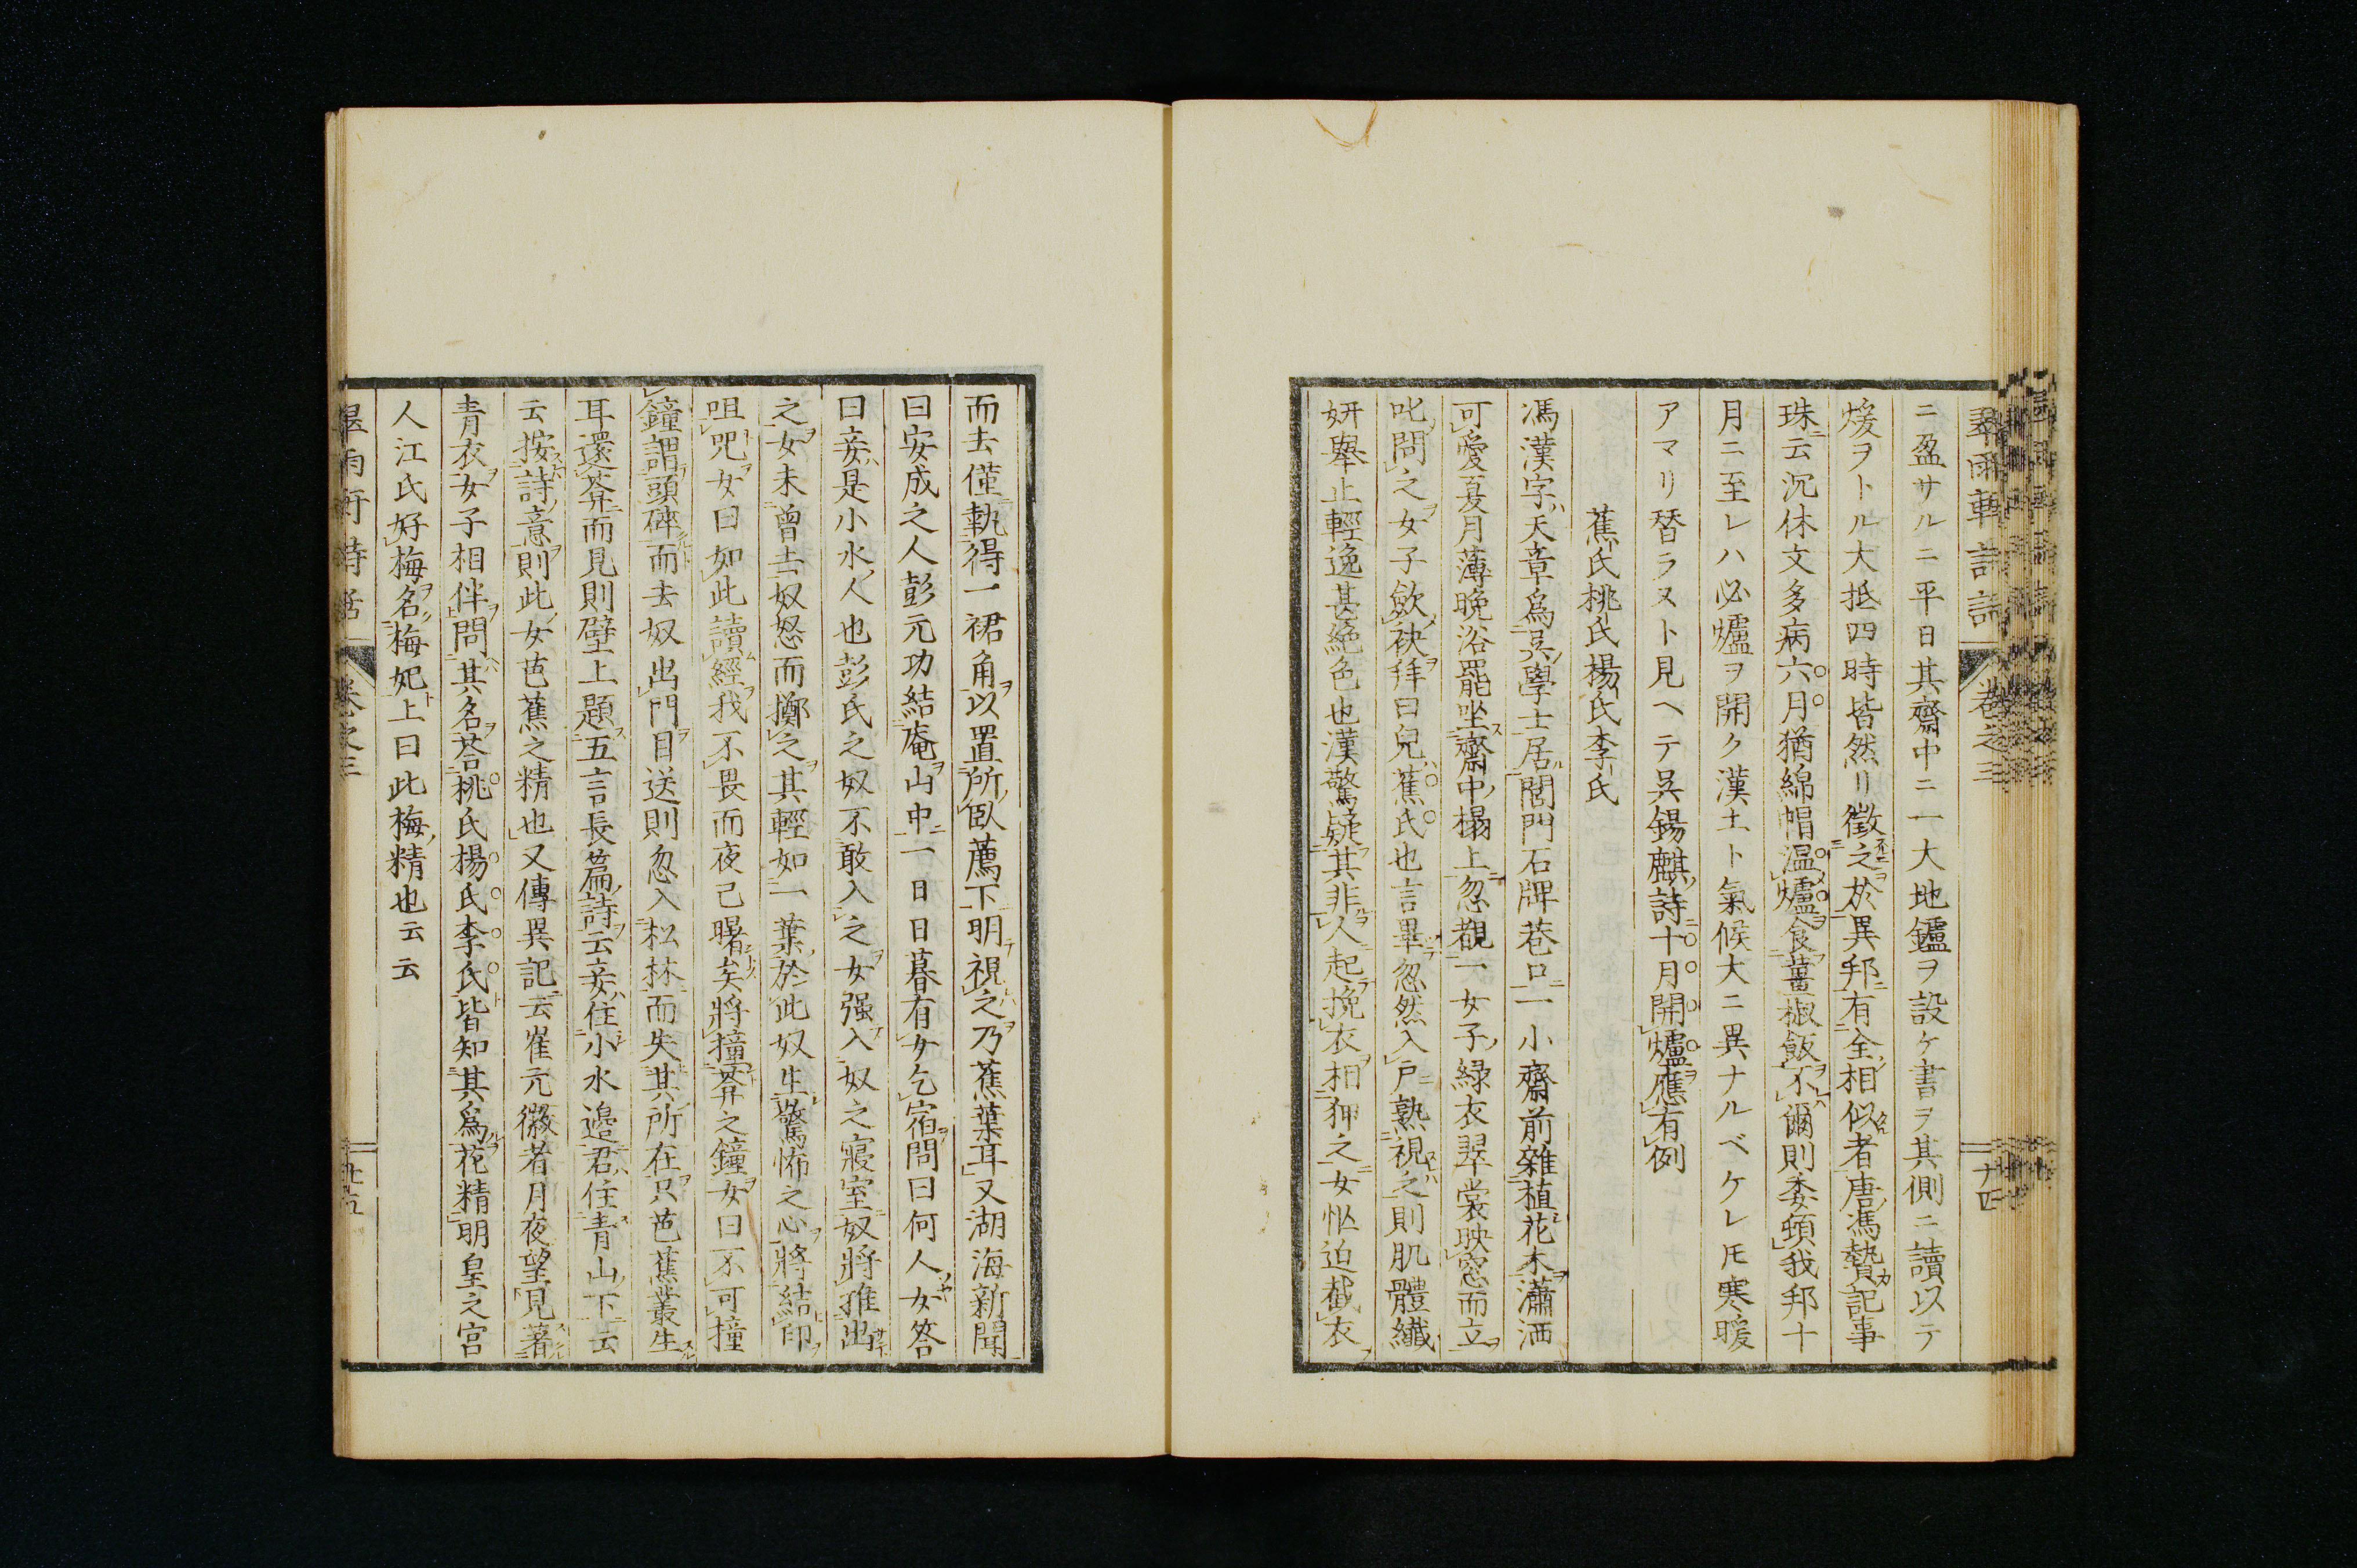 翠雨軒詩話 卷之三 十四
ニ盈サルニ平日其齋中ニ一大地鑪ヲ設ケ書ヲ其側ニ讀以テ
煖ヲトル大抵四時皆然リ徵之於異邦有全相似者唐馮贄記事
珠云沉休文多病六月猶綿帽温爐食薑椒飯不爾則委頓我邦十
月ニ至レハ必爐ヲ開ク漢土ト氣候大ニ異ナルベケレ𪜈寒暖
アマリ替ラヌト見ヘテ呉錫麒詩十月開爐應有例
蕉氏桃氏楊氏李氏
馮漢字天章爲呉學士居閶門石牌巷口一小齋前雜植花木瀟洒
可愛夏月薄晚浴罷坐齋中榻上忽覩一女子緑衣翠裳映窓而立
叱問之女子斂袂拜曰兒蕉氏也言畢忽然入戸熟視之則肌體纖
妍舉止輕逸甚絶色也漢驚疑其非人起挽衣相狎之女忙迫截衣
而去僅執得一裙角以置所臥薦下明視之乃蕉葉耳又湖海新聞
曰安成之人彭元功結庵山中一日日暮有女乞宿問曰何人女答
曰妾是小水人也彭氏之奴不敢入之女强入奴之寢室奴將推出
之女未曾去奴怒而擲之其輕如一葉於此奴生驚怖之心將結印
咀呪女曰如此讀經我不畏而夜已曙矣將撞菴之鐘女曰不可撞
鐘謂頭碎而去奴出門目送則忽入松林而失其所在只芭蕉叢生
耳還菴而見則壁上題五言長篇詩云妾住小水邉君住青山下云
云按詩意則此女芭蕉之精也又傳異記云崔元徽者月夜望見著
青衣女子相伴問其名荅桃氏楊氏李氏皆知其爲花精明皇之宮
人江氏好梅名梅妃上曰此梅精也云云
翠雨軒詩話 卷之三 十五